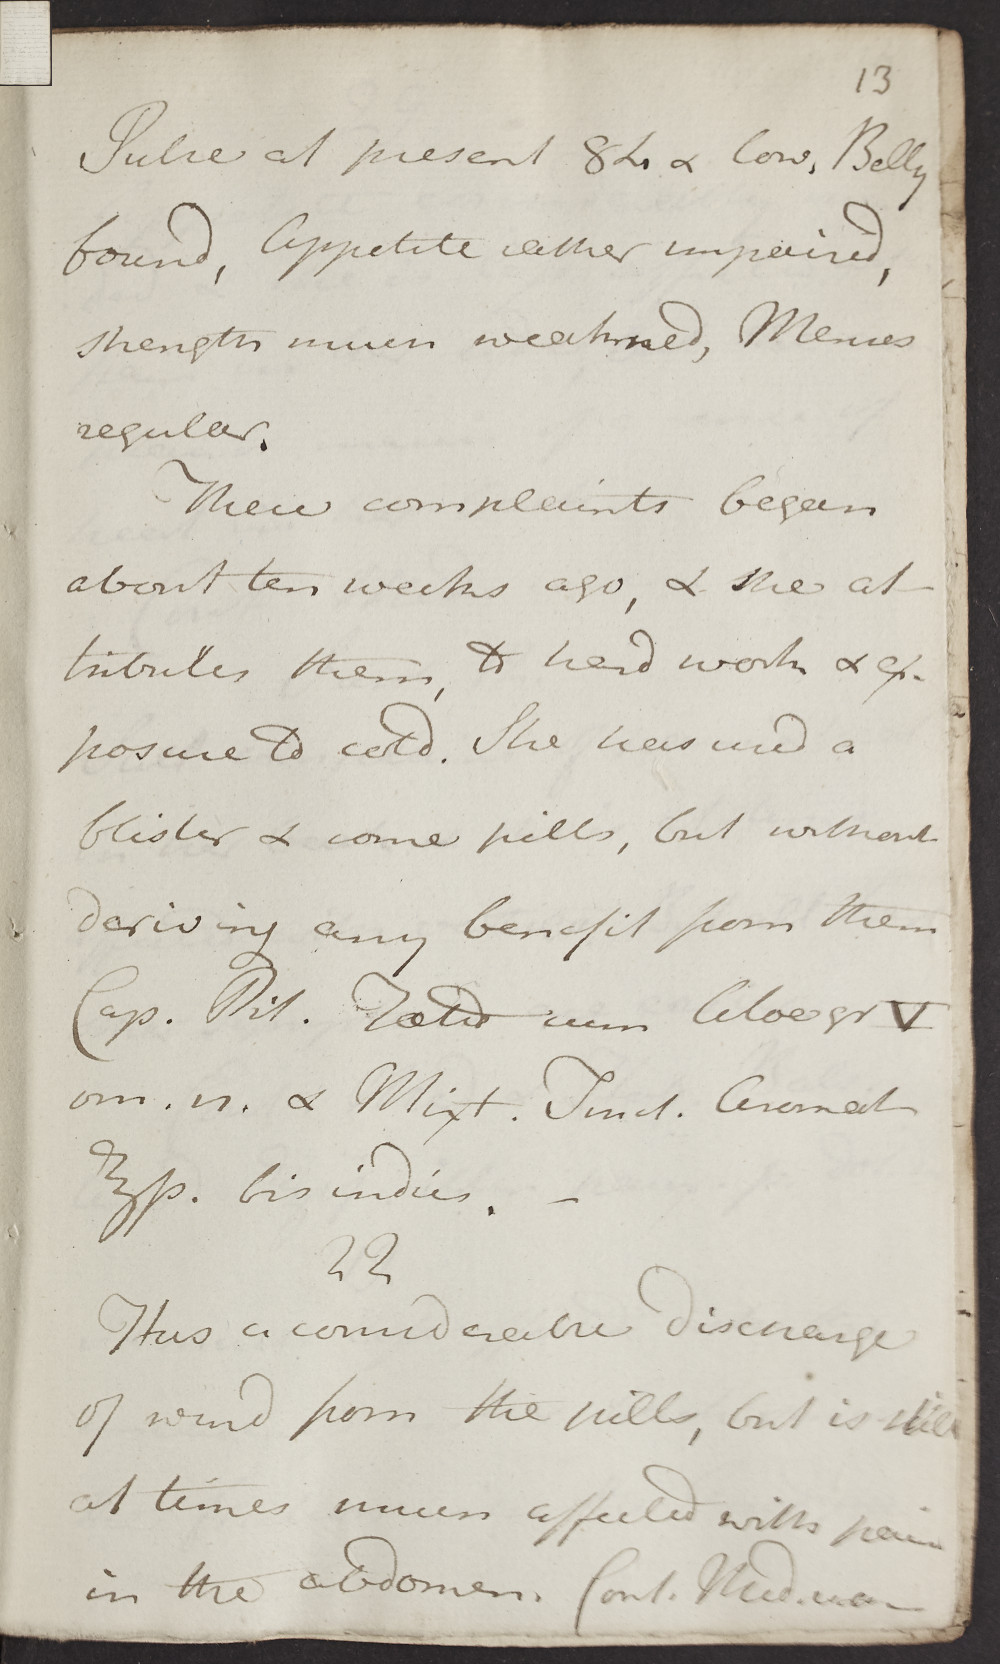 13
Pulse at present 84 & low, Belly
bound, Appetite rather impaired,
strength much weakened, Menses
regular.
These complaints began
about ten weeks ago, & she at
tributes them, to hard work & ex-
posure to cold. She has used a
blister & some pills, but without
deriving any benefit from them
Cap. Pil. Fœtid cum Aloe gr V
om. n. & Mixt. Tinct. Aromat
℥p. bis indies. —
22
Has a considerable discharge
of wind from the pills, but is still
at times much affected with pain
in the abdomen. Cont. Med.